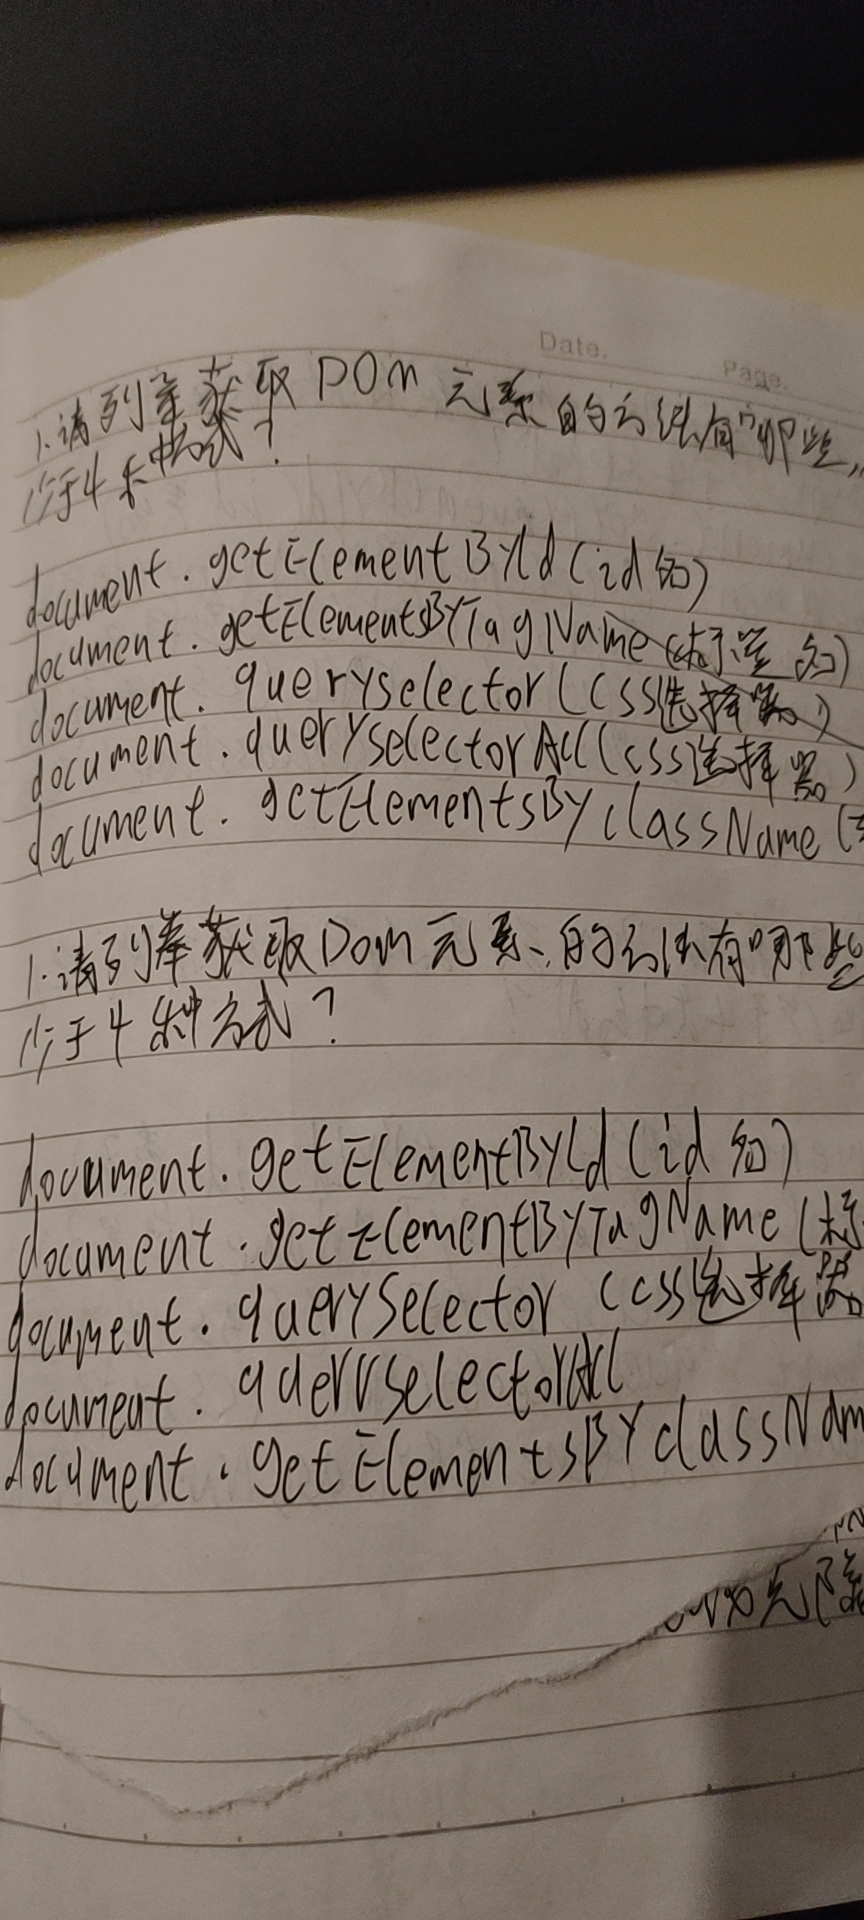 Date.
Page.
1.请列举获取DOM元素的方法有哪些,
少于4种方式?
document.getElementById(id名)
document.getElementsByTagName(标签名)
document.queryselector(css选择器)
document.queryselectorAll(css选择器)
document.getElementsByclassName(
1.请列举获取Dom元素的方法有哪些
少于4种方式?
document.getElementById(id名)
document.getElementByTagName(标
document.querySelector(css选择器
document.queryselectorAll
document.getElementsByclassNam
元素